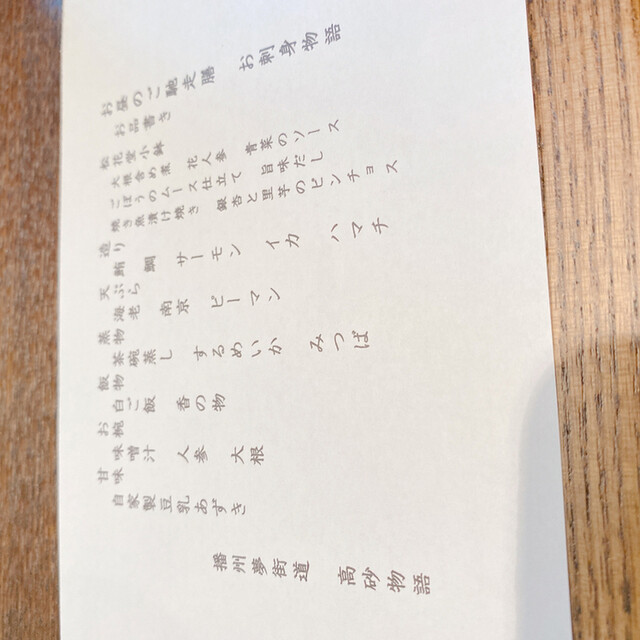 お昼のご馳走膳　お刺身物語
お品書き
松花堂小鉢
大根含め煮　花人参　青菜のソース
ごぼうのムース仕立て　旨味だし
焼き魚漬け焼き　銀杏と里芋のピンチョス
造り
鮪　鯛　サーモン　イカ　ハマチ
天ぷら
海老　南京　ピーマン
蒸物
茶碗蒸し　するめいか　みつば
飯物
白ご飯　香の物
お椀
味噌汁　人参　大根
甘味
自家製豆乳あずき
播州夢街道　高砂物語